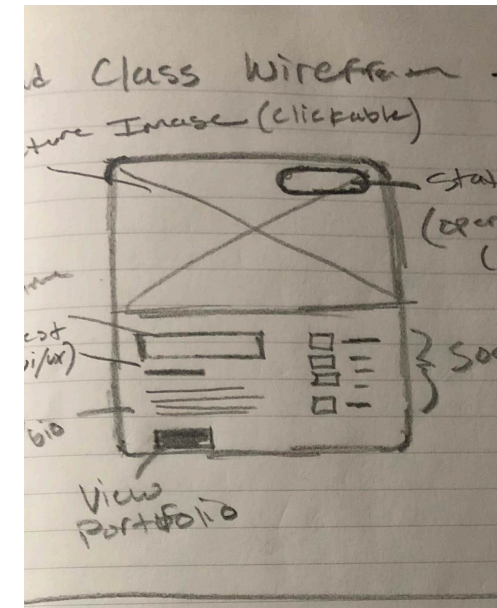 d Class Wirefram
ture Image (clickable)
Stat
(oper
(
est
oi/ux)
bio
Soc
View
Portfolio